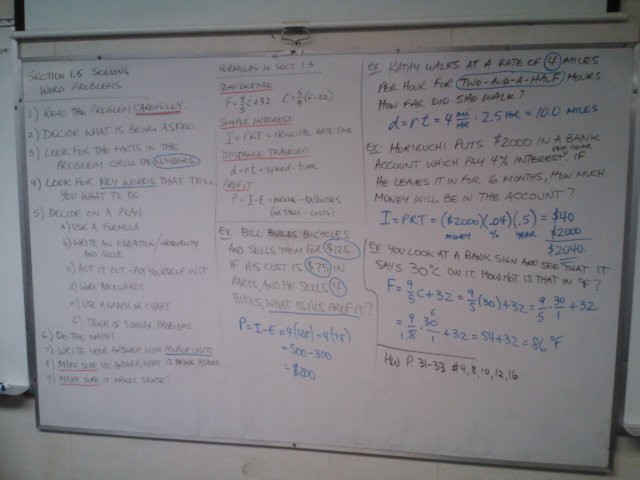 SECTION 1.5 SOLVING
WORD PROBLEMS
1) READ THE PROBLEM CAREFULLY.
2) DECIDE WHAT IS BEING ASKED.
3) LOOK FOR THE FACTS IN THE
PROBLEM. CIRCLE THE NUMBERS.
4) LOOK FOR KEY WORDS THAT TELL
YOU WHAT TO DO.
5) DECIDE ON A PLAN.
a) USE A FORMULA
b) WRITE AN EQUATION/INEQUALITY
AND SOLVE
c) ACT IT OUT - PUT YOURSELF IN IT
d) WORK BACKWARDS
e) USE A GRAPH OR CHART
f) THINK OF SIMILAR PROBLEMS
6) DO THE MATH!
7) WRITE YOUR ANSWER WITH PROPER UNITS
8) MAKE SURE YOU ANSWER WHAT IS BEING ASKED
9) MAKE SURE IT MAKES SENSE!
FORMULAS IN SECT. 1.5
TEMPERATURE
F = 9/5 C + 32 C = 5/9 (F - 32)
SIMPLE INTEREST
I = PRT = PRINCIPAL·RATE·TIME
DISTANCE TRAVELED
d = r·t = speed · time
PROFIT
P = I - E = INCOME - EXPENSES
(OR SALES - COSTS)
EX: BILL BUILDS BICYCLES
AND SELLS THEM FOR $125.
IF HIS COST IS $75 IN
PARTS, AND HE SELLS 4
BIKES, WHAT IS HIS PROFIT?
P = I - E = 4(125) - 4(75)
= 500 - 300
= $200
EX: KATHY WALKS AT A RATE OF 4 MILES
PER HOUR FOR TWO-AND-A-HALF HOURS
HOW FAR DID SHE WALK?
d = r t = 4 mi/HR · 2.5 HR = 10.0 MILES
EX: HORIGUCHI PUTS $2000 IN A BANK
ACCOUNT WHICH PAY 4% INTEREST PER YEAR. IF
HE LEAVES IT IN FOR 6 MONTHS, HOW MUCH
MONEY WILL BE IN THE ACCOUNT?
I = PRT = ($2000)(.04)(.5) = $40
MONEY % YEAR $2000
$2040.
EX: YOU LOOK AT A BANK SIGN AND SEE THAT IT
SAYS 30°C ON IT. HOW HOT IS THAT IN °F?
F = 9/5 C + 32 = 9/5 (30) + 32 = 9/5 · 30/1 + 32
= 9/5 · 30/1 + 32 = 54 + 32 = 86 °F
HW P. 31-33 #4, 8, 10, 12, 16